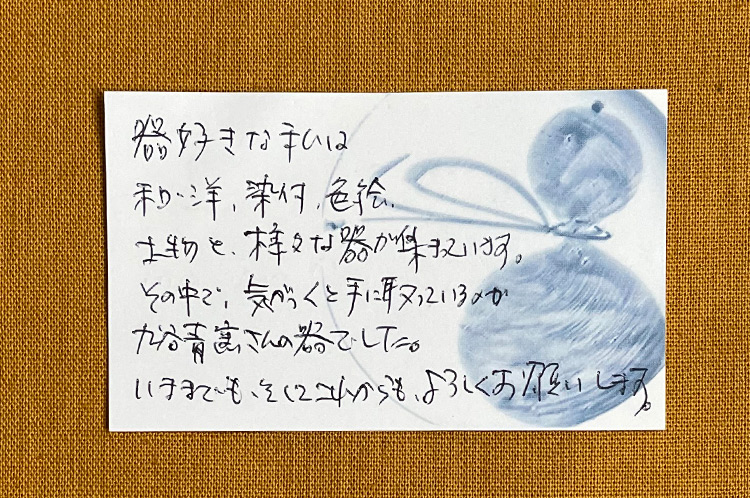 器好きな手いは
和・洋、染付、色絵、
土物と、様々な器が集まっています。
その中で、気がつくと手に取っているのが
九谷青窯さんの器でした。
いままでも、そしてこれからも、よろしくお願いします。